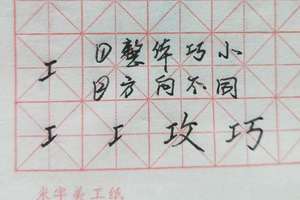 工 ①整体巧小
②方向不同
工 工 攻 巧
米字美工纸